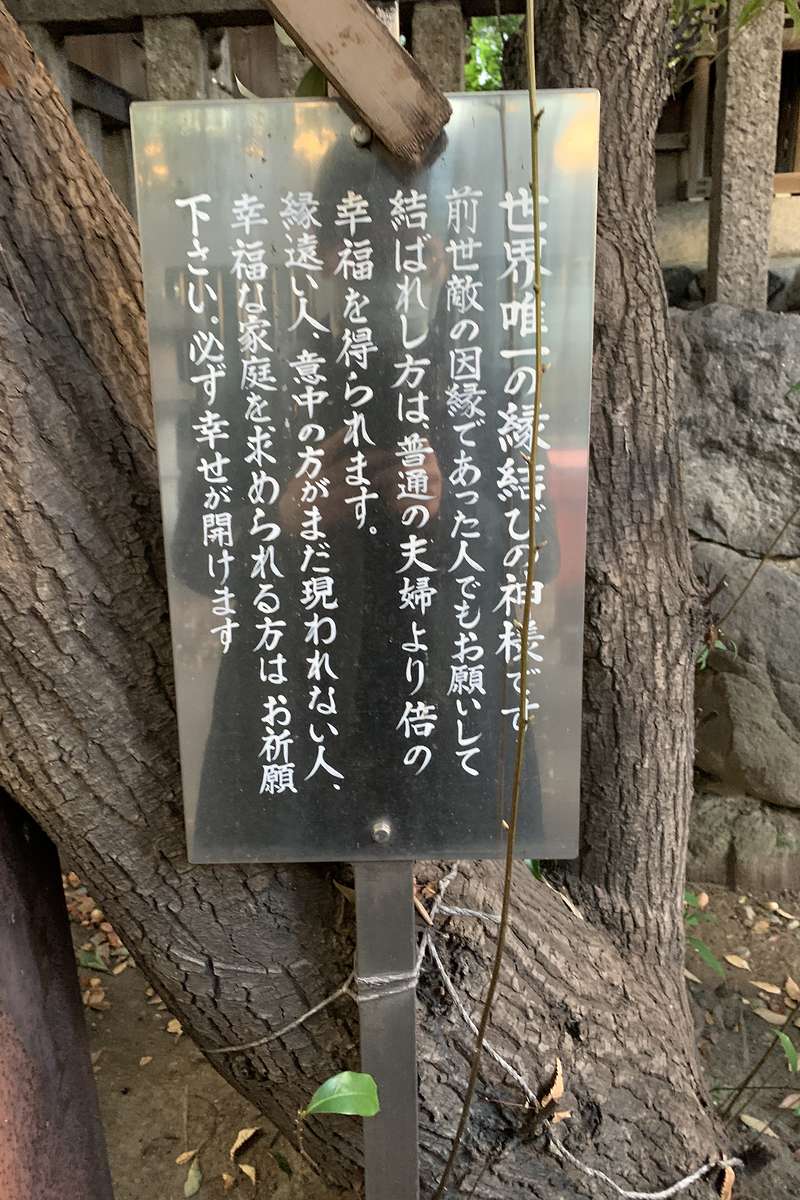 世界唯一の縁結びの神様です
前世敵の因縁であった人でもお願いして
結ばれし方は、普通の夫婦より倍の
幸福を得られます。
縁遠い人、意中の方がまだ現われない人、
幸福な家庭を求められる方はお祈願
下さい、必ず幸せが開けます